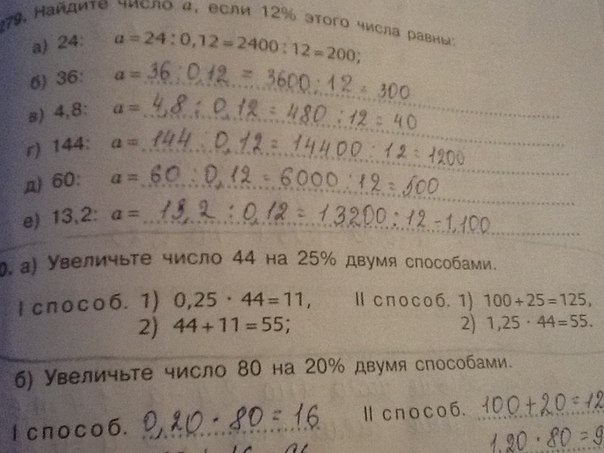 279. Найдите число a, если 12% этого числа равны:
а) 24: a = 24 : 0,12 = 2400 : 12 = 200;
б) 36: a = 36 : 0,12 = 3600 : 12 = 300
в) 4,8: a = 4,8 : 0,12 = 480 : 12 = 40
г) 144: a = 144 : 0,12 = 14400 : 12 = 1200
д) 60: a = 60 : 0,12 = 6000 : 12 = 500
е) 13,2: a = 13,2 : 0,12 = 13200 : 12 - 1,100
0. а) Увеличьте число 44 на 25% двумя способами.
I способ. 1) 0,25 · 44 = 11, II способ. 1) 100 + 25 = 125,
2) 44 + 11 = 55; 2) 1,25 · 44 = 55.
б) Увеличьте число 80 на 20% двумя способами.
I способ. 0,20 · 80 = 16 II способ. 100 + 20 = 12
1,20 · 80 = 9